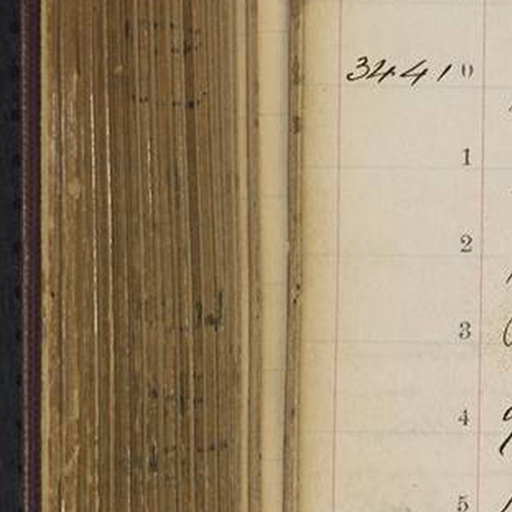 34410
1
2
3
4
5